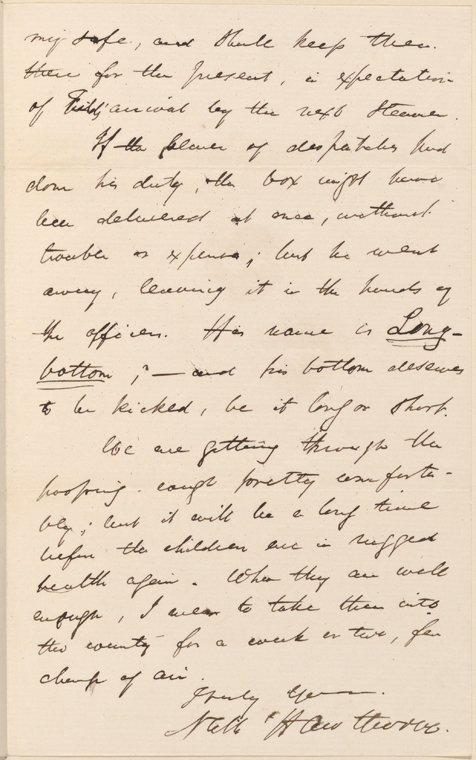 my safe, and shall keep them
there for the present, in expectation
of Fields' arrival by the next steamer.
If the bearer of despatches had
done his duty, the box might have
been delivered at once, without
trouble or expense; but he went
away, leaving it in the hands of
the officers. His name is Long-
bottom;—and his bottom deserves
to be kicked, be it long or short.
We are getting through the
hooping-cough pretty comforta-
bly; but it will be a long time
before the children are in rugged
health again. When they are well
enough, I mean to take them into
the country for a week or two, for
change of air.
Truly Yours.
Nath Hawthorne.